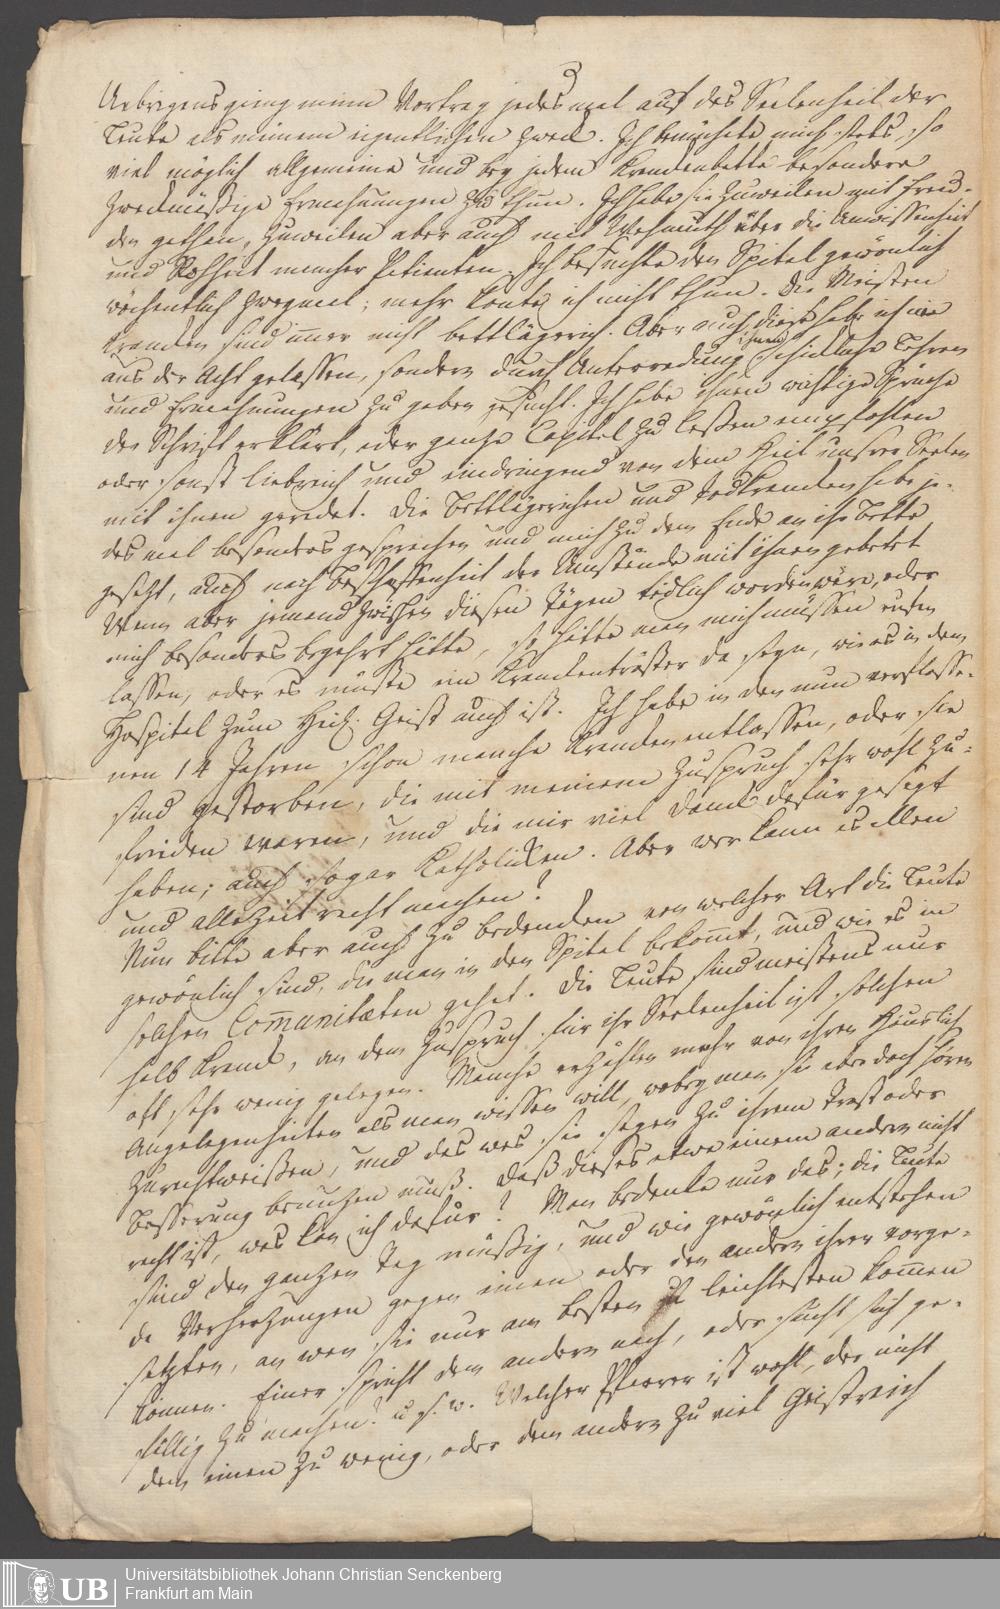 3
Uebrigens ging mein Vortrag jedes mal auf das Seelenheil der
Leute als meinem eigentlichen Zweck. Ich bemühete mich stets, so
viel möglich allgemeine und bey jedem Krankenbette besondere
zweckmäßige Ermahnungen zu thun. Ich habe sie zuweilen mit Freu-
den gethan, zuweilen aber auch mit Wehmuth über die Unwissenheit
und Rohheit mancher Patienten. Ich besuchte den Spital gewönlich
wöchentlich zweymal; mehr konte ich nicht thun. Die Meisten
Kranken sind immer nicht bettlägerich. Aber auch diese habe ich nie
aus der Acht gelassen, sondern durch Unterredung ihnen schickliche Lehren
und Ermahnungen zu geben gesucht. Ich habe ihnen wichtige Sprüche
der Schrift erklärt, oder ganze Capitel zu leßen empfohlen
oder sonst liebreich und eindringend von dem Heil unsrer Seelen
mit ihnen geredet. Die bettlägerichen und Todkranken habe je-
des mal besonders gesprochen und mich zu dem Ende an ihr Bette
gesetzt, auch nach Beschaffenheit der Umstände mit ihnen gebetet
Wenn aber jemand zwischen diesen Tägen tödlich worden wäre, oder
mich besonders begehrt hätte, so hätte man mich müssen rufen
lassen, oder es müßte ein Krankentröster da seyn, wie es in dem
Hospital zum Heil. Geist auch ist. Ich habe in den nun verflosse-
nen 14 Jahren schon manche Kranken entlassen, oder sie
sind gestorben, die mit meinem Zuspruch sehr wohl zu-
frieden waren, und die mir viel Dank dafür gesagt
haben; auch sogar Katholicken. Aber wer kann es allen
und alle Zeit recht machen?
Nun bitte aber auch zu bedenken von welcher Art die Leute
gewönlich sind, die man in den Spital bekommt, und wie es in
solchen Communitæten gehet. Die Leute sind meistens nur
halb krank, an dem Zuspruch für ihr Seelenheil ist solchen
oft sehr wenig gelegen. Manche erzählen mehr von ihren häuslich
Angelegenheiten als man wissen will, wobey man sie aber doch hören
zurechtweisen, und das was sie sagen zu ihrem Trost oder
Besserung benutzen muß. Daß dieses etwa einem andern nicht
recht ist, was kan ich dafür? Man bedenke nur das; die Leute
sind den ganzen Tag müßig, und wie gewönlich entstehen
da Verhetzungen gegen einen oder den andern ihrer vorge-
setzten, an wen sie nur am besten u leichtesten kommen
können. Einer spricht dem andern nach, oder sucht sich ge-
fällig zu machen? u. s. w. Welcher Pfarrer ist wohl, der nicht
dem einen zu wenig, oder dem andern zu viel Geistreich
UB
Universitätsbibliothek Johann Christian Senckenberg
Frankfurt am Main